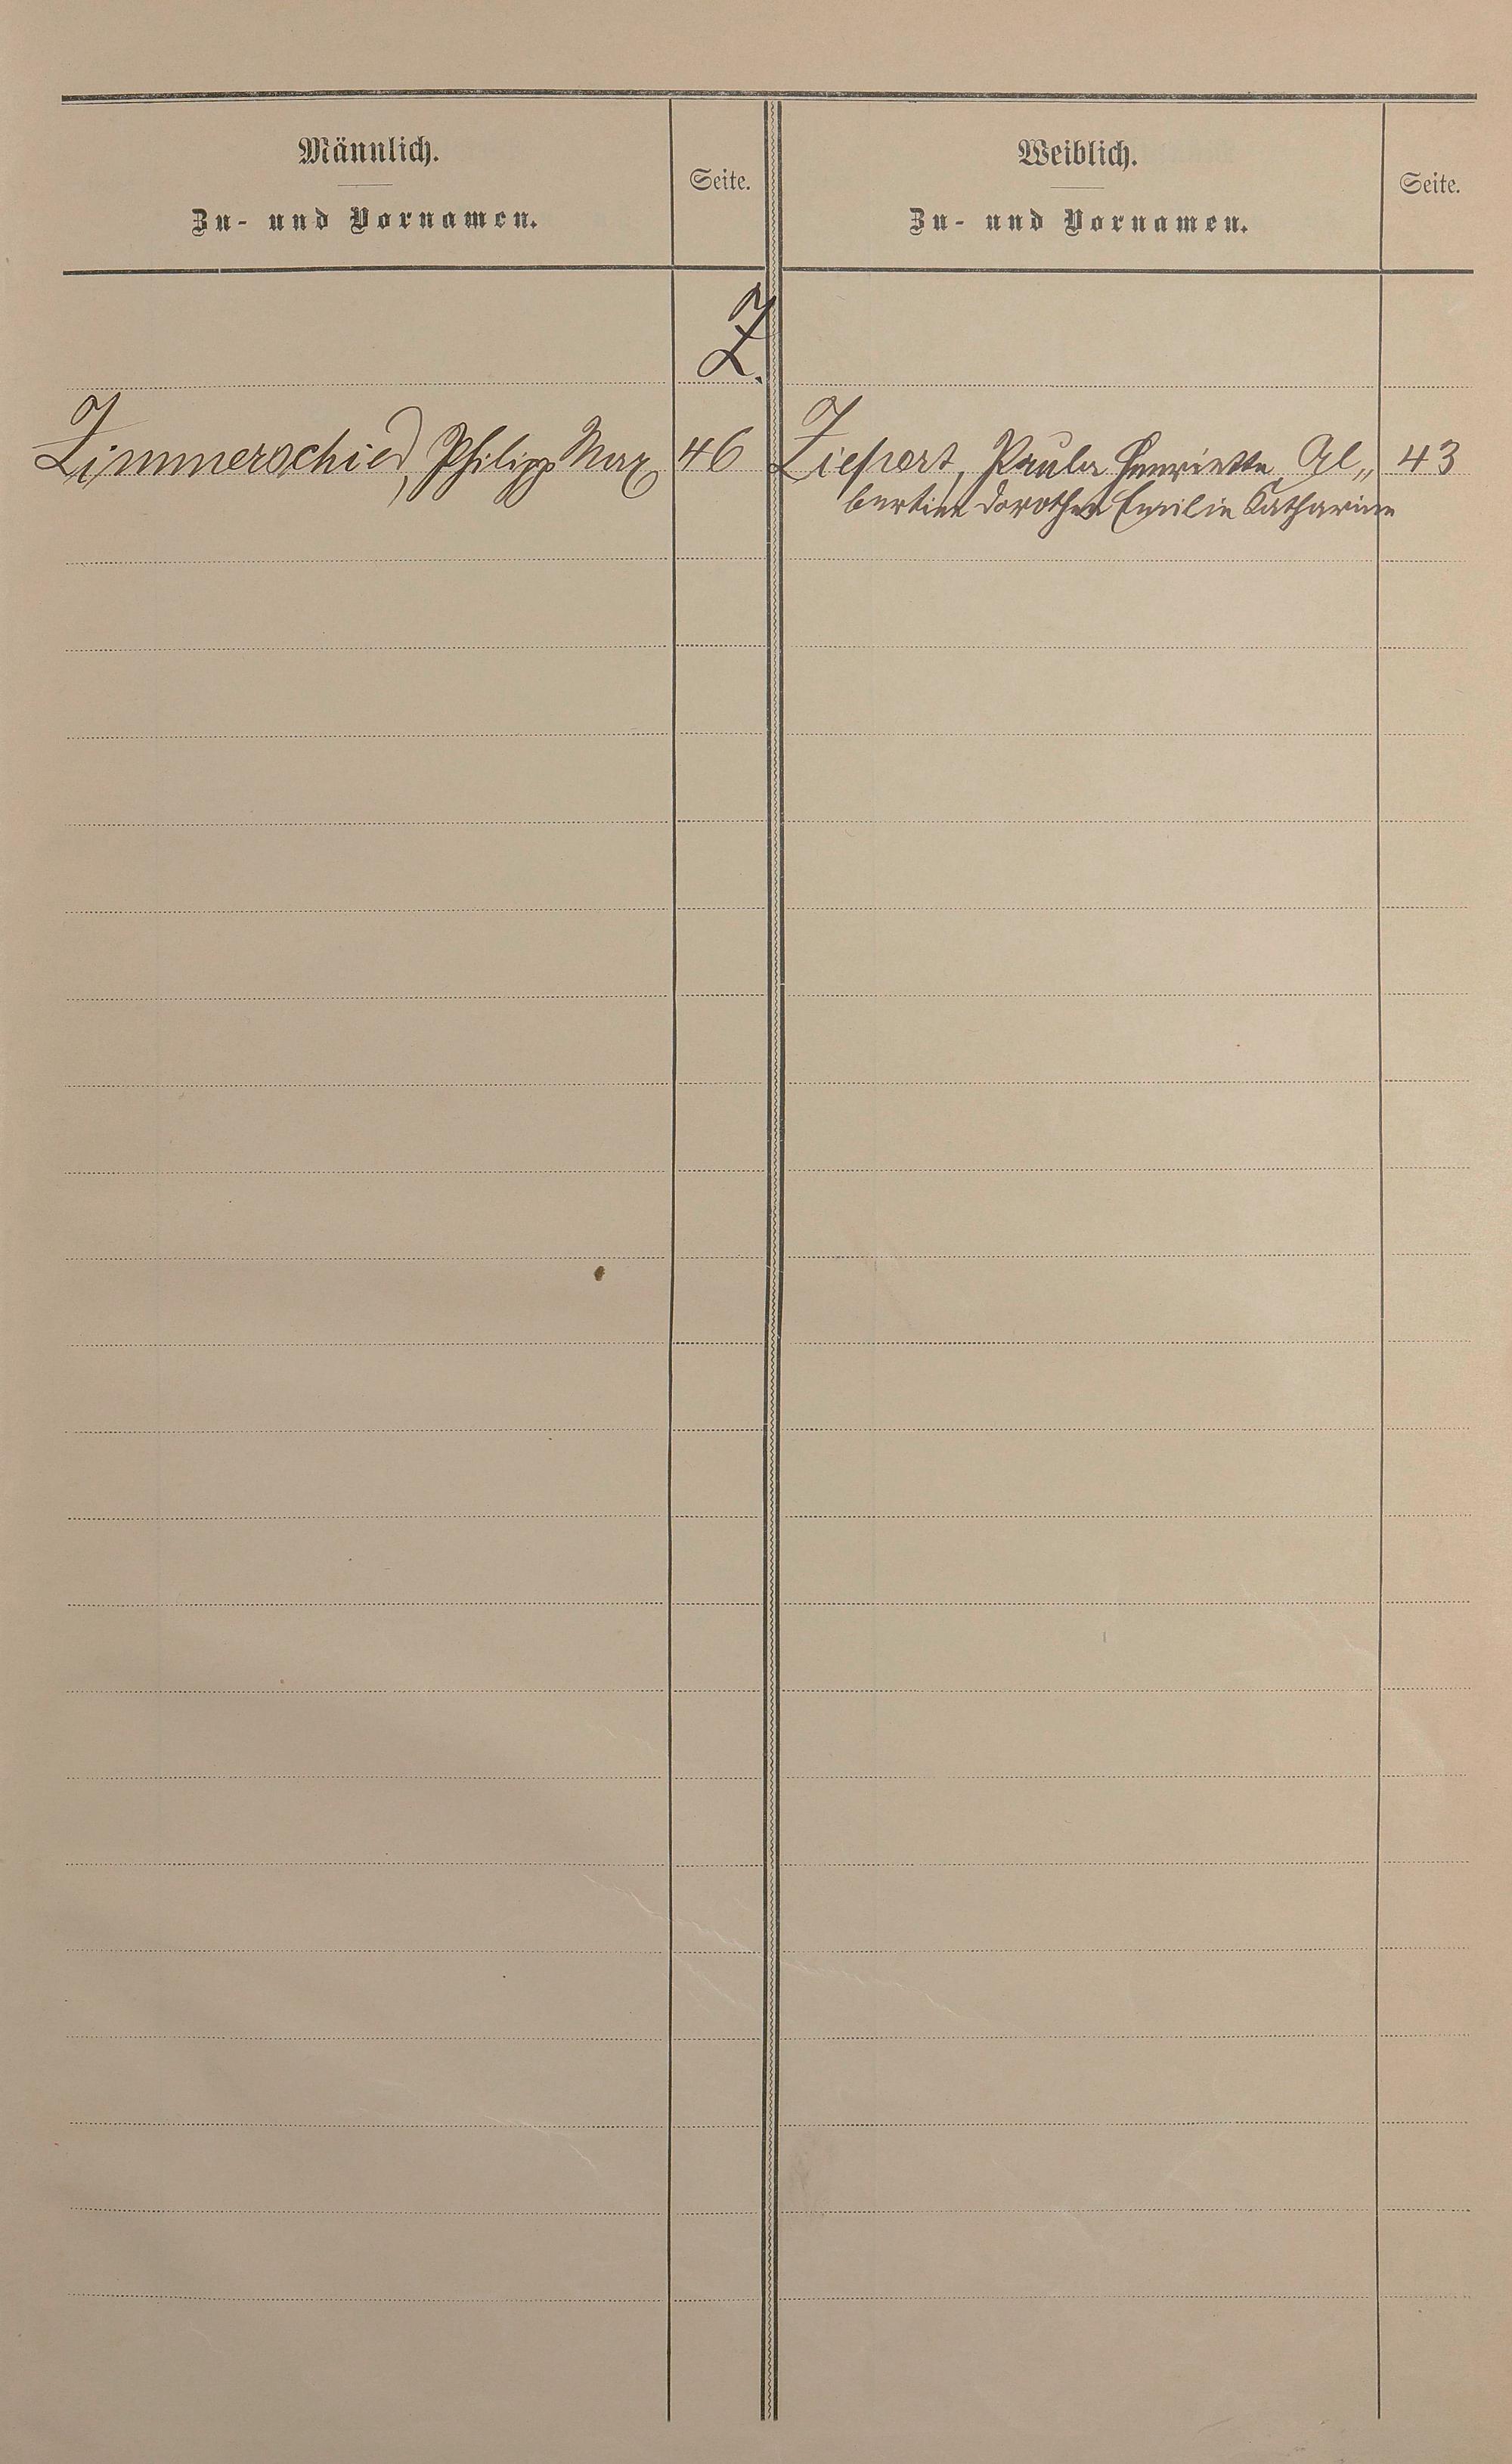 Männlich.
Zu- und Vornamen.
Seite.
Weiblich.
Zu- und Vornamen.
Seite.
Z.
Zimmerschied, Philipp Max 46
Paula Henriette Al„ 43
bertine Dorothea Emilie Katharine